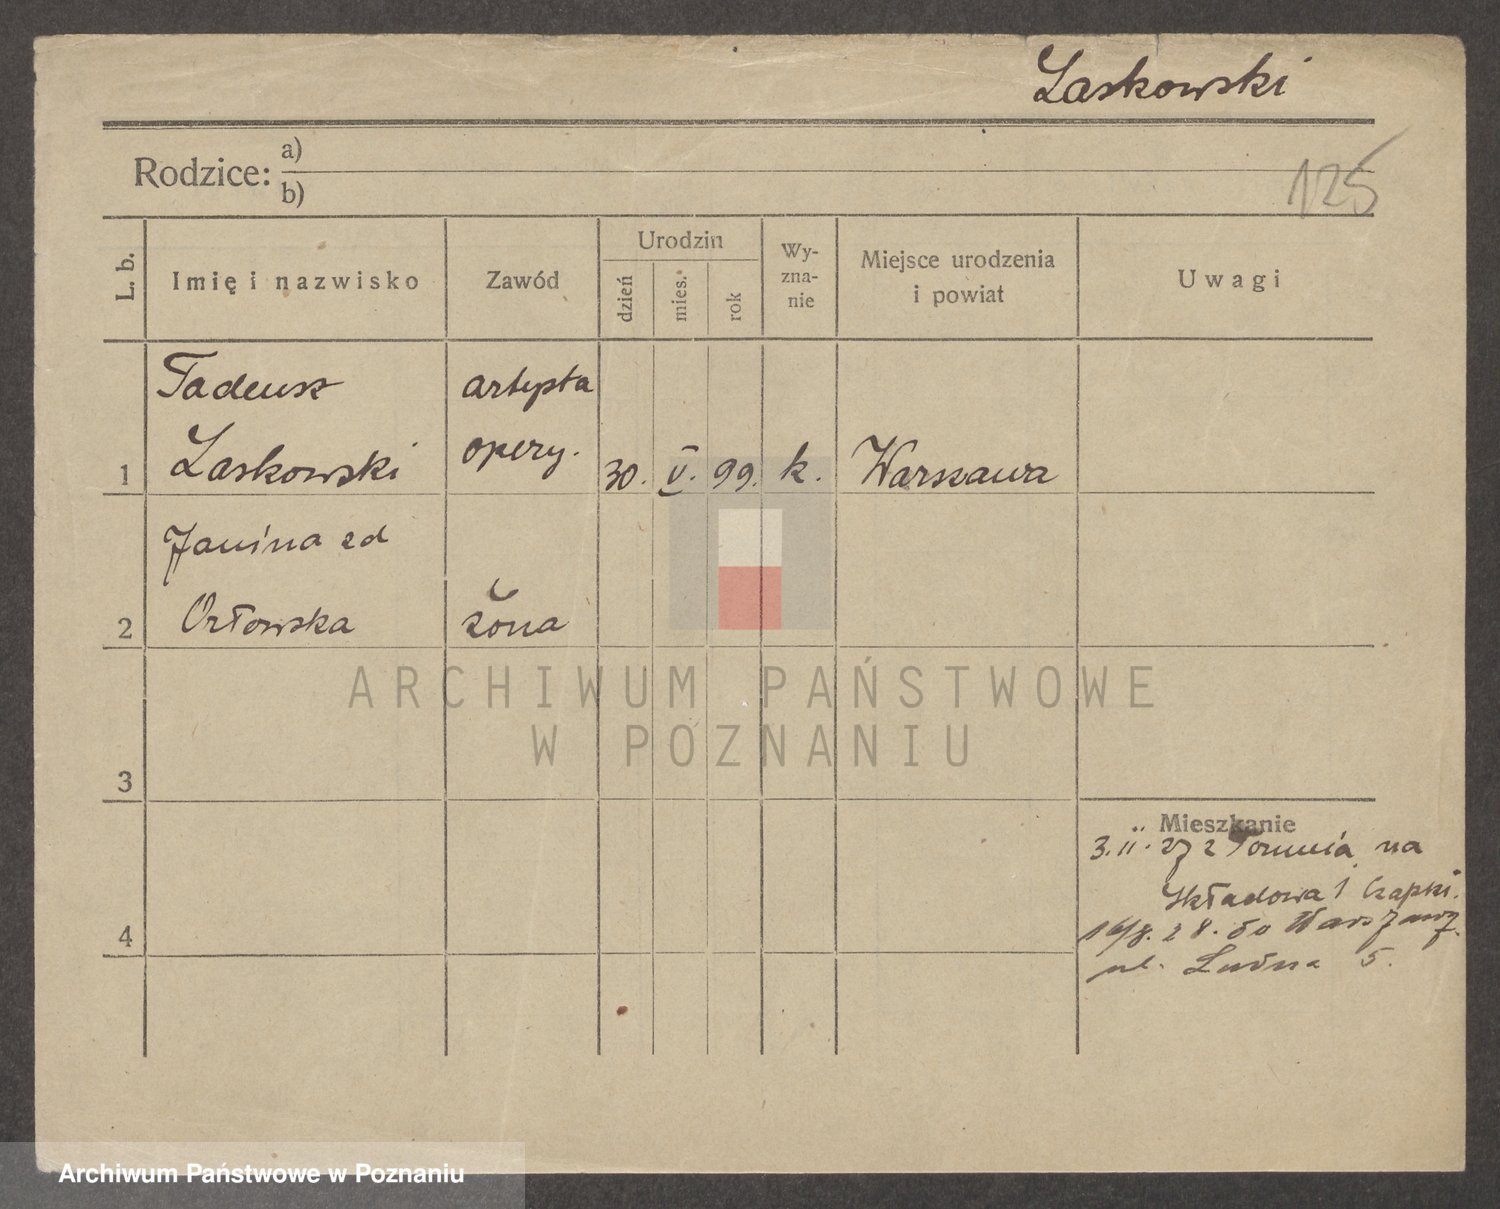 Laskowski
125
Rodzice: a)
b)
L. b.
Imię i nazwisko
Zawód
Urodzin
dzień
mies.
rok
Wy-
zna-
nie
Miejsce urodzenia
i powiat
Uwagi
Tadeusz artysta
1 Laskowski opery. 30. V. 99. k. Warszawa
Janina zd
2 Orłowska żona
ARCHIWUM PAŃSTWOWE
W POZNANIU
3
Mieszkanie
3.II. 27 z Torunia na
Składowa 1 Czapki.
4
16/8. 28. do Warszawy
ul. Luźna 5.
Archiwum Państwowe w Poznaniu